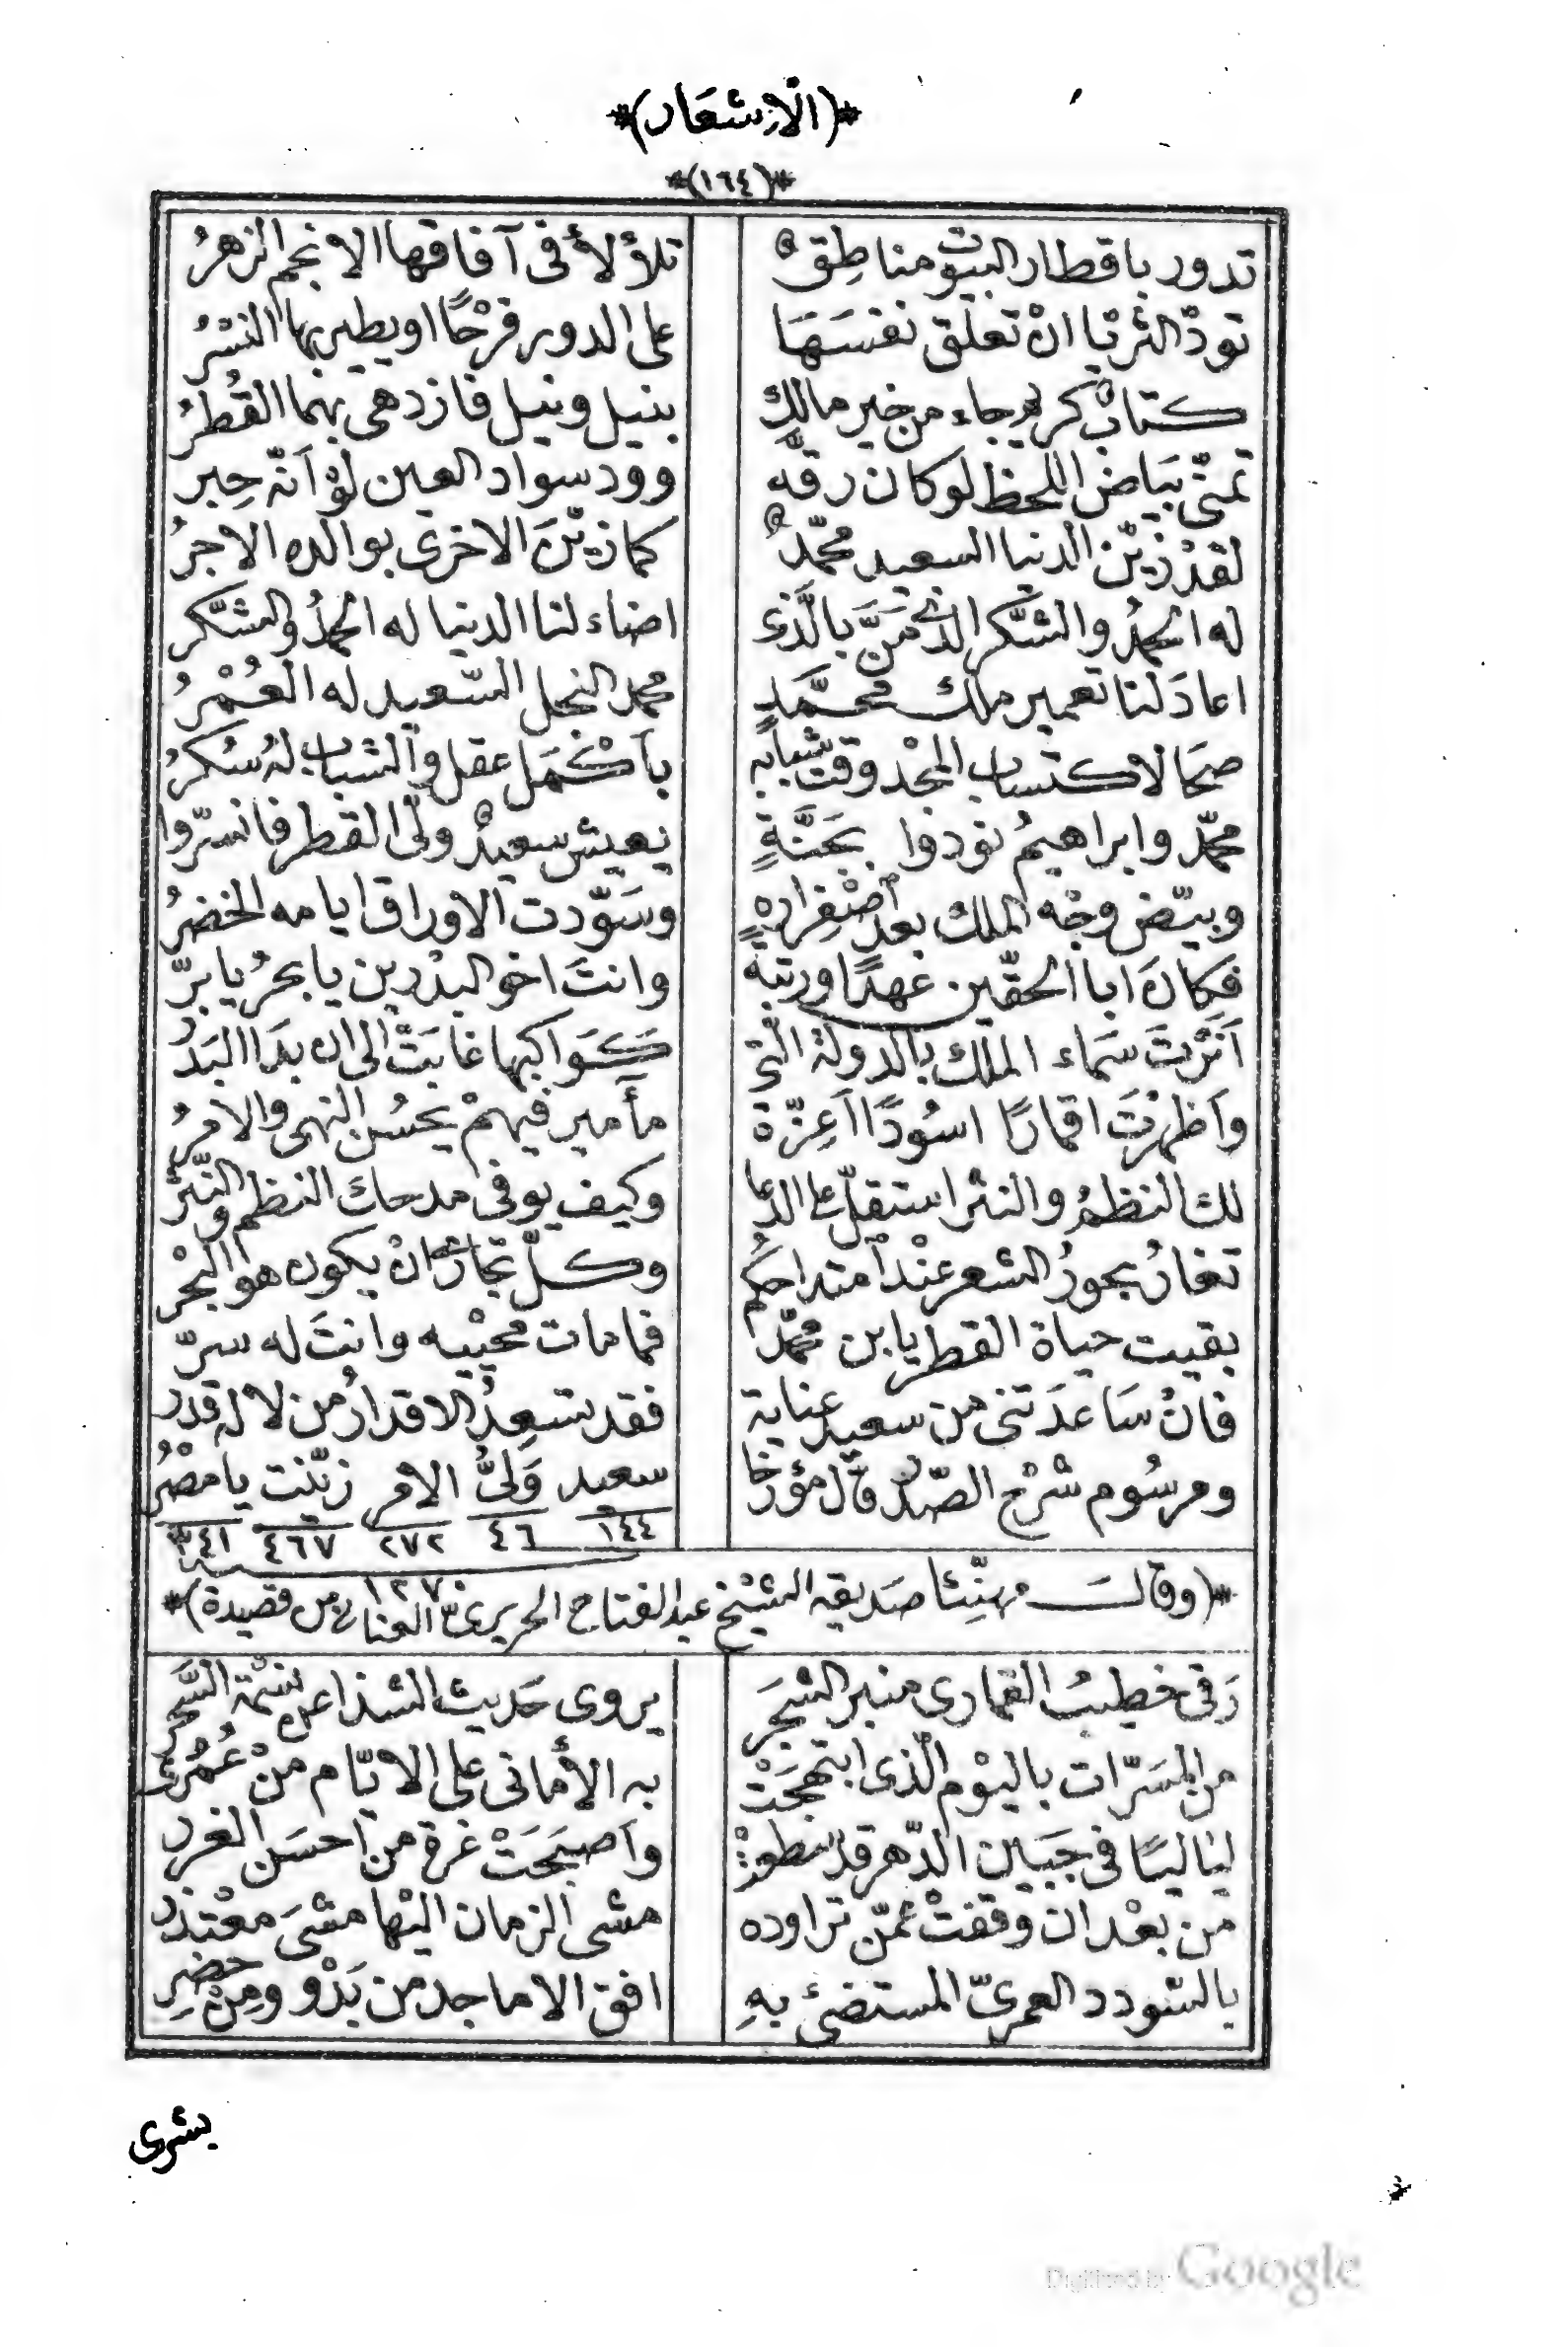 *(الاشعار)*
*(١٦٤)*
تدور باقطار البيوت مناطق تلألأ في آفاقها الانجم الزهرُ
تودّ الثريّا انْ تعلّق نفسَهَا على الدور فرْحًا او يطير بها النسْرُ
كتابٌ كريم جاء من خير مالك بنيل ونيل فازدهى بهما القُطرُ
تمنّى بيَاض اللحظ لو كان رقّه وود سواد العين لوْ أنّه حِبر
لقدْ زيّن الدنيا السعيد محمّدٌ كما زيّنَ الاخرى بوالده الاجرُ
له الحمدُ والشكر الذي مَنَّ بالَّذى اضاء لنا الدنيا له الحمدُ والشكر
اعادَ لنا تعمير ملك محمَّدٍ محمد النجل السّعيد له العُمْرُ
صحَا لاكتساب المجْد وقت شبابه بأكْمَل عقل والشباب لهُ سُكرُ
محمّد وابراهيمُ نودوا بجَنَّةٍ يعيش سعيدٌ ولىّ القطر فانسرّوا
وبيّض وجْه الملك بعد اصْفِرارهِ وسَوّدت الاوراق ايامه الخضرُ
فكانَ ابا الحقّين عهدًا ورتبة وانتَ اخو البدْرين يا بحرُ يا برّ
أنَرْتَ سَماء الملك بالدولة الّتي كَوَاكبها غابَتْ الى ان بدَا البَدرُ
وأظهرْتَ اقمارًا اسُودًا أعِزّة مأمير فيهمْ يحسُن النهى والامرُ
لك النظمُ والنثر استقلّ على الدعا وكيف يوفى مدحكَ النظم والنّثرُ
تغارُ بحورُ الشعر عنْد امتداحكُم وكلّ تمارٌ انْ يكون هو البحْرُ
بقيت حياة القطر يا بن محمّد فما مات محييْه وانتَ له سرّ
فانْ سَاعدَتنى من سعيد عناية فقد تسعِدُ الاقدارُ من لا له قدر
ومرسُوم شرْح الصّدر قال مؤرّخا سعيد وَلىُّ الامر زيّنت يا مصْرُ
١٤٤ ٤٦ ٢٧٢ ٤٦٧ ٣٤١
١٢٧٠
*(وقالَ مهنّئا صَديقه الشيْخ عبد الفتاح الحريرى من قصيدة)*
رَقى خطيبُ القمارى منبر الشجَرِ يروى حَديث الشذا عن نسْمة السَّحرِ
من المسَرّات باليوْم الّذى ابتهجَتْ به الأمانى على الايّام منْ عُمُرى
لياليًا فى جَبين الدّهر قد سطعتْ وأصبَحَتْ غرة من احسَن الغرر
من بعْد ان وقفتْ عمّن تراوده مشى الزمان اليْها مشىَ معْتذر
بالسّودد العمرىّ المستضئ بهِ افق الاماجد من بَدْو ومِنْ حضرِ
بشرى
Digitized by Google